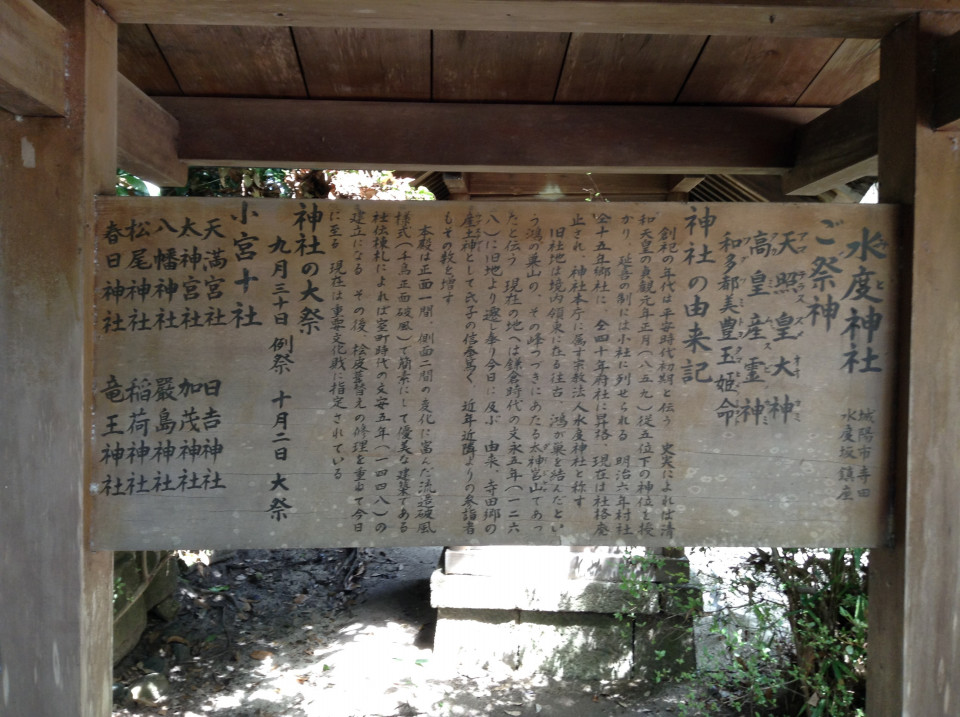 水度神社
城陽市寺田
水度坂鎮座
ご祭神
天照皇大神
高皇産霊神
和多都美豊玉姫命
神社の由来記
創祀の年代は平安時代初期と伝う 史実によれば清
和天皇の貞観元年正月(八五九)従五位下の神位を授
かり、延喜の制には小社に列せられる 明治六年村社
全十五年郷社に、全四十年府社に昇格 現在は社格廃
止され、神社本庁に属す宗教法人水度神社と称す
旧社地は境内領東に在る往古 鴻が巣を結んだとい
う鴻の巣山の、その峰つづきにあたる太神宮山であっ
たと伝う 現在の地へは鎌倉時代の文永五年(一二六
八)に旧地より遷し奉り今日に及ぶ 由来、寺田郷の
産土神として氏子の信奉篤く 近年近隣よりの参詣者
もその数を増す
本殿は正面一間、側面二間の変化に富んだ流造破風
様式(千鳥正面破風)で簡素にして優美な建築である
社伝棟札によれば室町時代の文安五年(一四四八)の
建立になる その後、桧皮葺替えの修理を重ねて今日
に至る 現在は重要文化財に指定されている
神社の大祭
九月三十日 例祭 十月二日 大祭
小宮十社
天満宮社 日吉神社
太神宮社 加茂神社
八幡神社 厳島神社
松尾神社 稲荷神社
春日神社 竜王神社